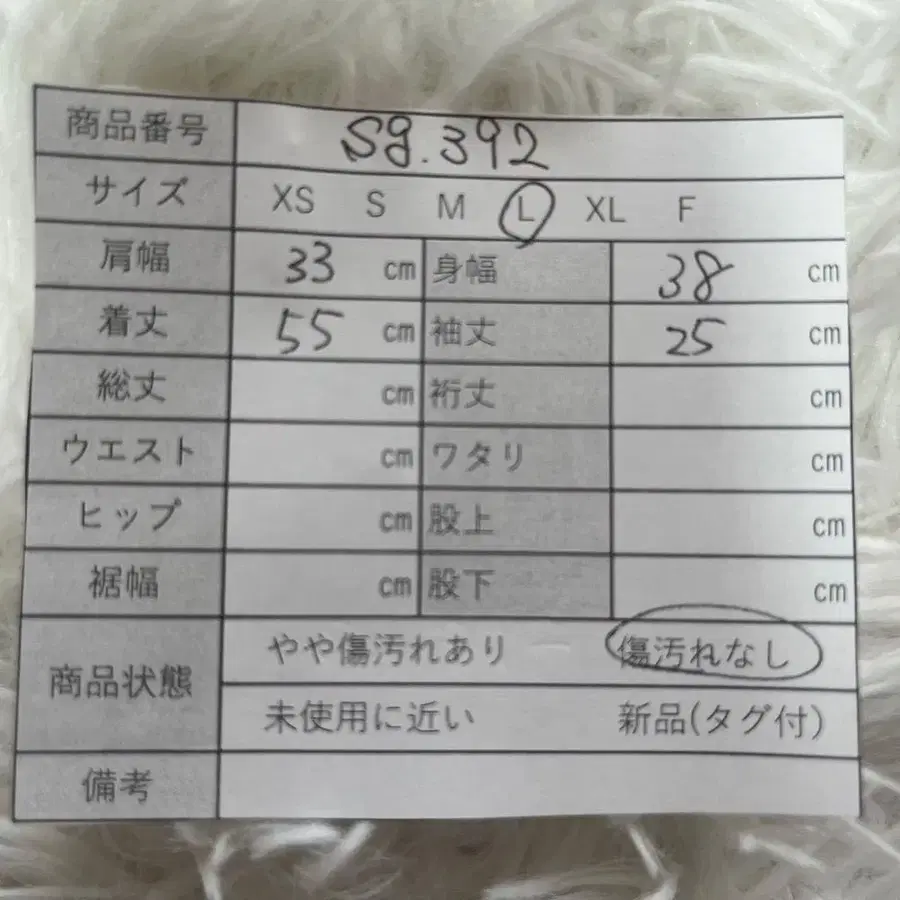 商品番号 sg.392
サイズ XS S M L XL F
肩幅 33 cm 身幅 38 cm
着丈 55 cm 袖丈 25 cm
総丈 cm 裄丈 cm
ウエスト cm ワタリ cm
ヒップ cm 股上 cm
裾幅 cm 股下 cm
商品状態 やや傷汚れあり 傷汚れなし
未使用に近い 新品(タグ付)
備考